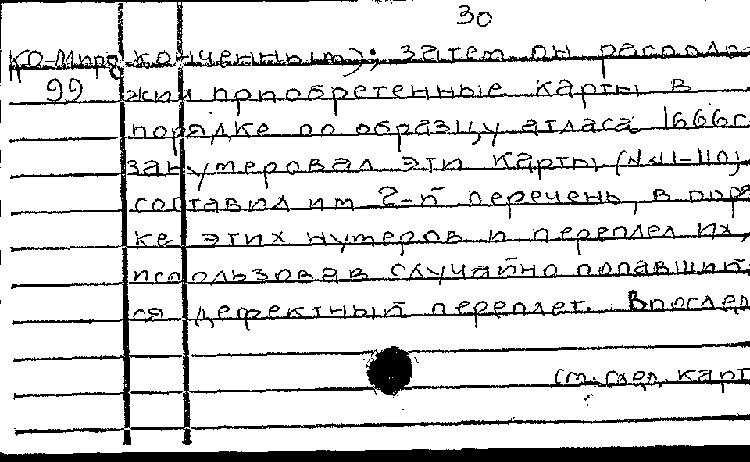 30
КО-Миро конченным); затем он располо-
99 жил приобретенные карты в
порядке по образцу атласа 1666г.
занумеровал эти карты (№№1-110),
составил им 2-й перечень, в поряд
ке этих нумеров и переплел их,
использовав случайно попавший
ся дефектный переплет. Впослед
см. след. карт